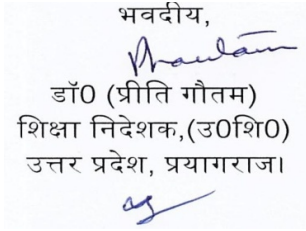 भवदीय,
डॉ0 (प्रीति गौतम)
शिक्षा निदेशक,(उ0शि0)
उत्तर प्रदेश, प्रयागराज।